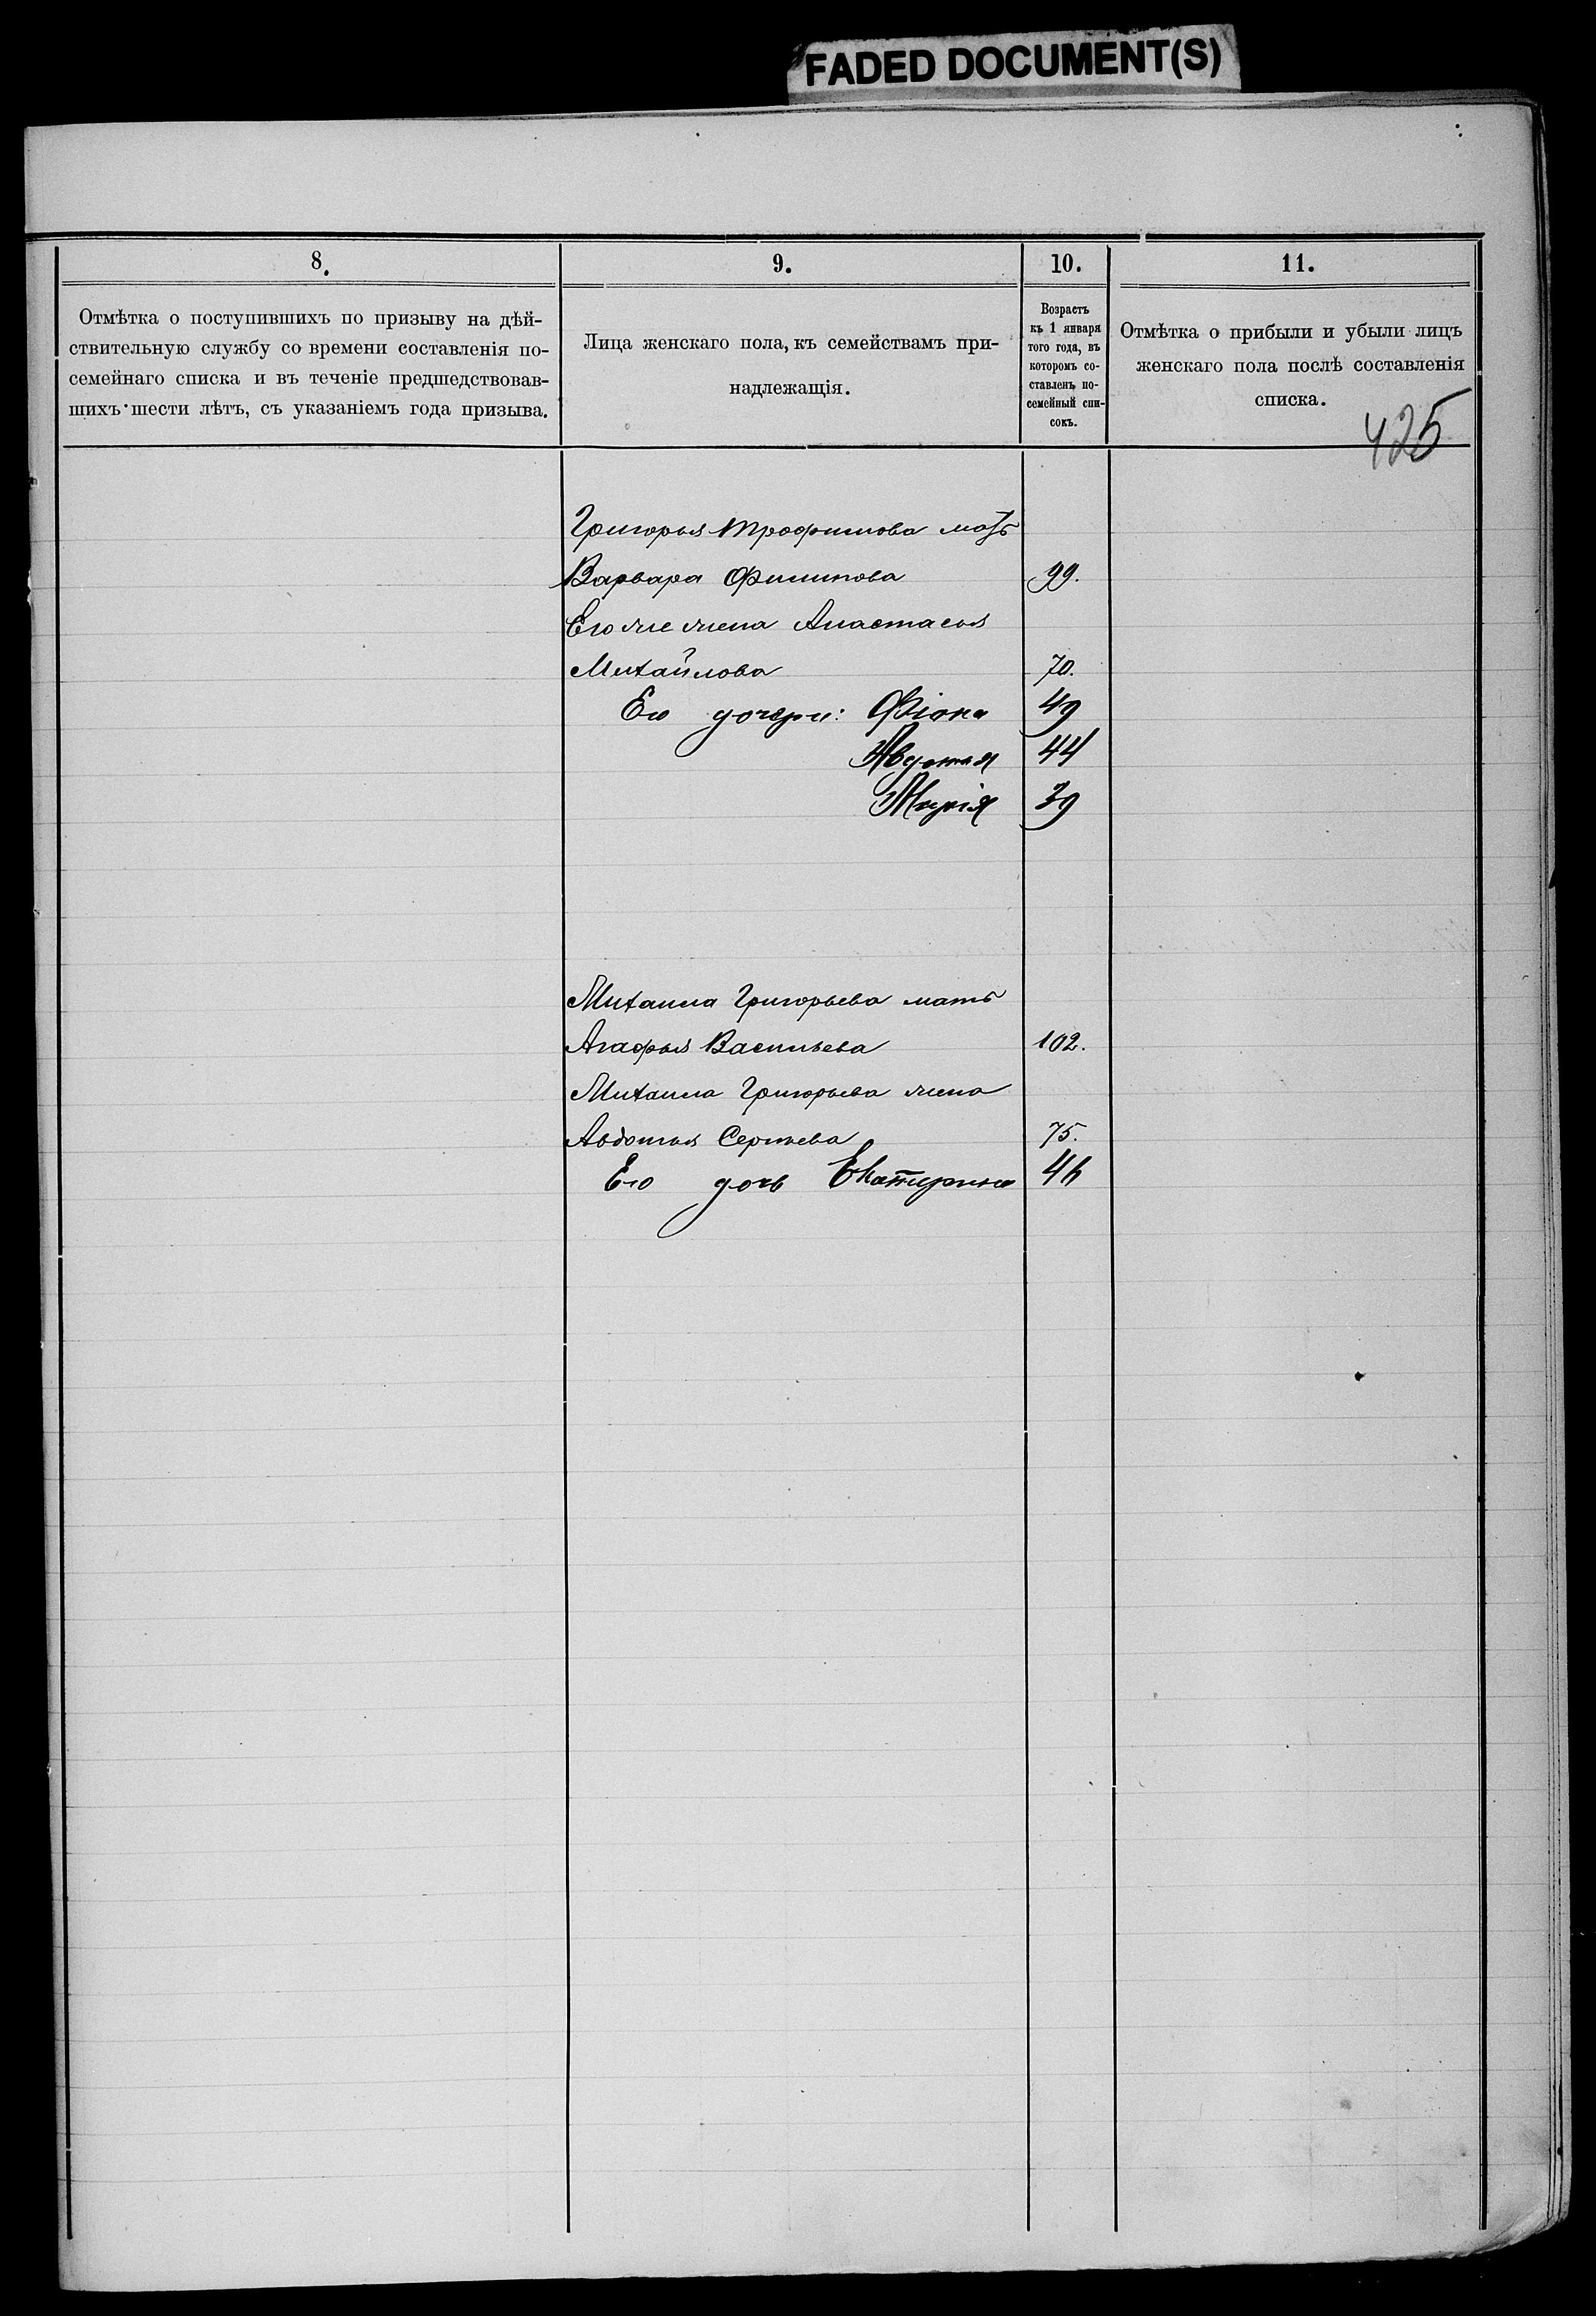 FADED DOCUMENT(S)
8.
Отмѣтка о поступившихъ по призыву на дѣй-
ствительную службу со времени составленія по-
семейнаго списка и въ теченіе предшедствовав-
шихъ шести лѣтъ, съ указаніемъ года призыва.
9.
Лица женскаго пола, къ семействамъ при-
надлежащія.
10.
Возрастъ
къ 1 января
того года, въ
которомъ со-
ставленъ по-
семейный спи-
сокъ.
11.
Отмѣтка о прибыли и убыли лицъ
женскаго пола послѣ составленія
списка.
425
Григорья Трофимова мать
Варвара Филипова 99.
Его же жена Анастасья
Михайлова 70.
Его дочери: Фіона 49
Авдотья 44
Марія 39
Михаила Григорьева мать
Агафья Васильева 102.
Михаила Григорьева жена
Авдотья Сергѣева 75.
Его дочь Екатерина